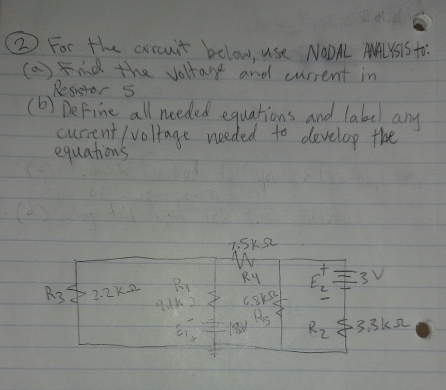 ② For the circuit below, use NODAL ANALYSIS to:
(a) Find the voltage and current in
Resistor 5
(b) Define all needed equations and label any
current/voltage needed to develop the
equations
7.5kΩ
R4
R3 2.2kΩ
R1
6.8kΩ
R5
E1 - +
18V
+ E2 - 3V
R2 3.3kΩ